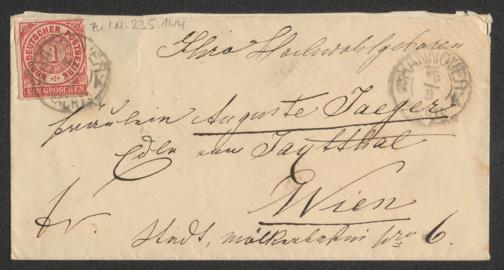 zu I.N. 235.144
NORDDEUTSCHER POSTBEZIRK
1
EIN GROSCHEN
HANNOVER
Ihro Hochwohlgeboren
Fräulein Auguste Jaeger
Edle von
Wien
fr.
Stadt, Mölkerbastei No 6.